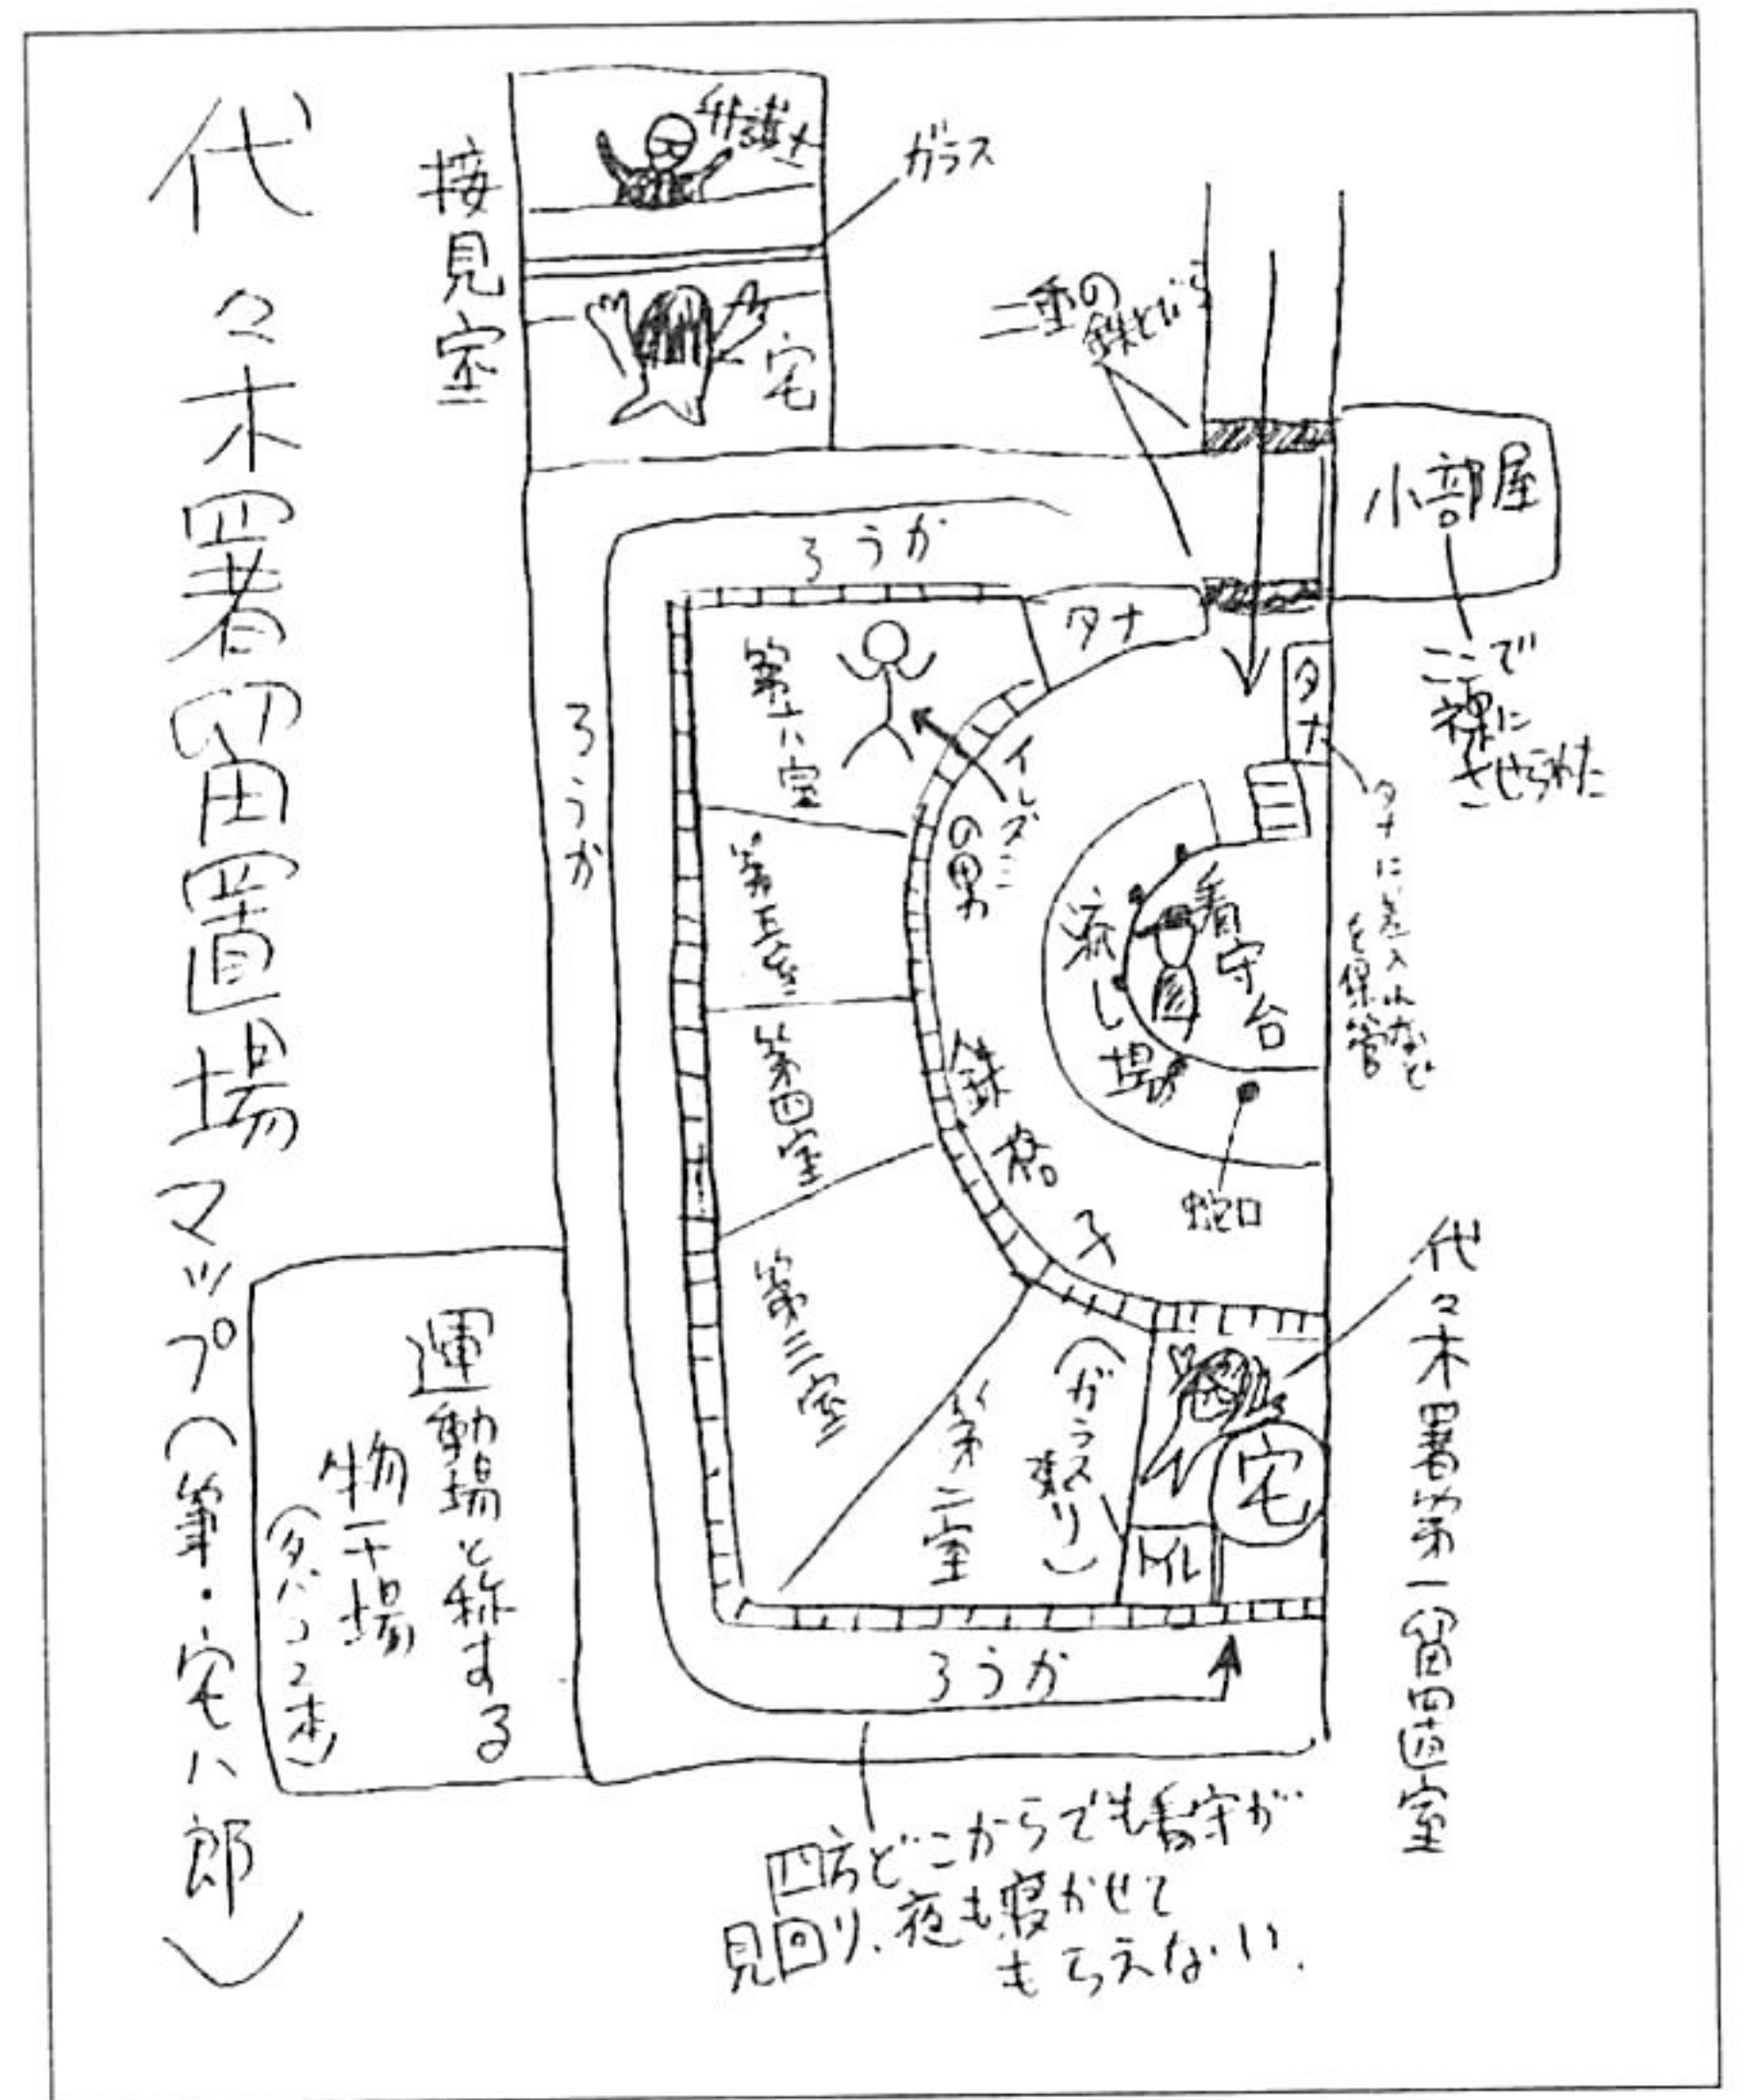 代々木署留置場マップ(筆・宅八郎)
接見室
弁護士
ガラス
宅
二重の
鉄とびら
小部屋
ここで
裸に
させられた
ろうか
タナ
タナ
タナに差入れなど
を保管
ろうか
第六室
イレズミ
の男
第五室
第四室
第三室
第二室
(ガラス
張り)
トイレ
宅
鉄格子
流し場
看守台
蛇口
代々木署第一留置室
運動場と称する
物干場
(タバコ2本)
ろうか
四方どこからでも看守が
見回り、夜も寝かせて
もらえない.